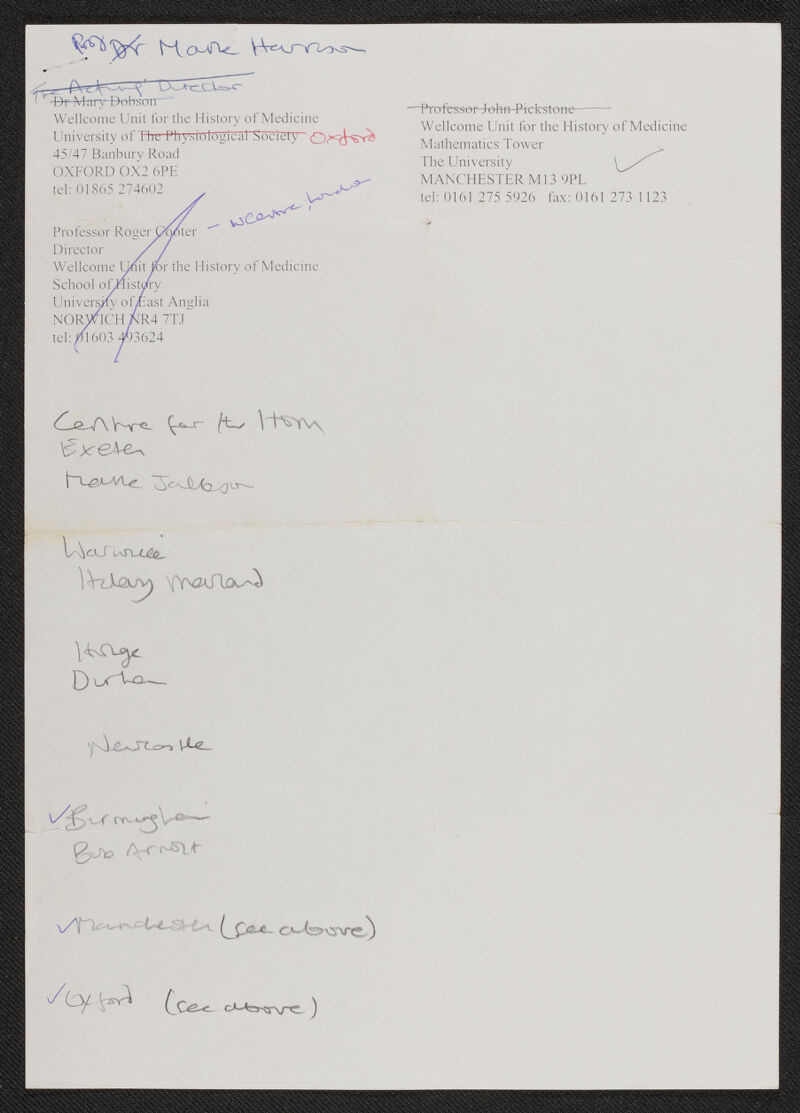 Prof Dr Mark Harrison
The Acting Director
Dr Mary Dobson
Wellcome Unit for the History of Medicine
University of The Physiological Society Oxford
45/47 Banbury Road
OXFORD OX2 6PE
tel: 01865 274602
Professor Roger Cooter - WCentre, London
Director
Wellcome Unit for the History of Medicine
School of History
University of East Anglia
NORWICH NR4 7TJ
tel: 01603 493624
Professor John Pickstone
Wellcome Unit for the History of Medicine
Mathematics Tower
The University
MANCHESTER M13 9PL
tel: 0161 275 5926 fax: 0161 273 1123
Centre for the HoM
Exeter
Mark Jackson
Warwick
Hilary Marland
Holge
Durham
Newcastle
✓Birmingham
Bob Arnott
✓Manchester (see above)
✓Oxford (see above)